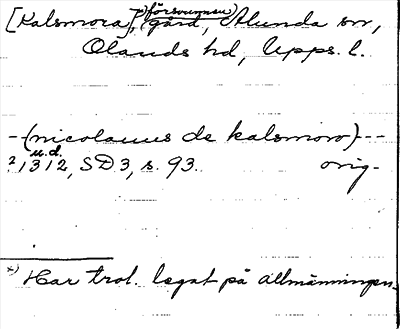 [Kalsmora], *) (försvunnen) gård, Alunda sn,
Olands hd, Upps. l.
--(nicolaus de kalsmoro)---
u.d.
? 1312, SD 3, s. 93. orig.
*) Har trol. legat på allmänningen.